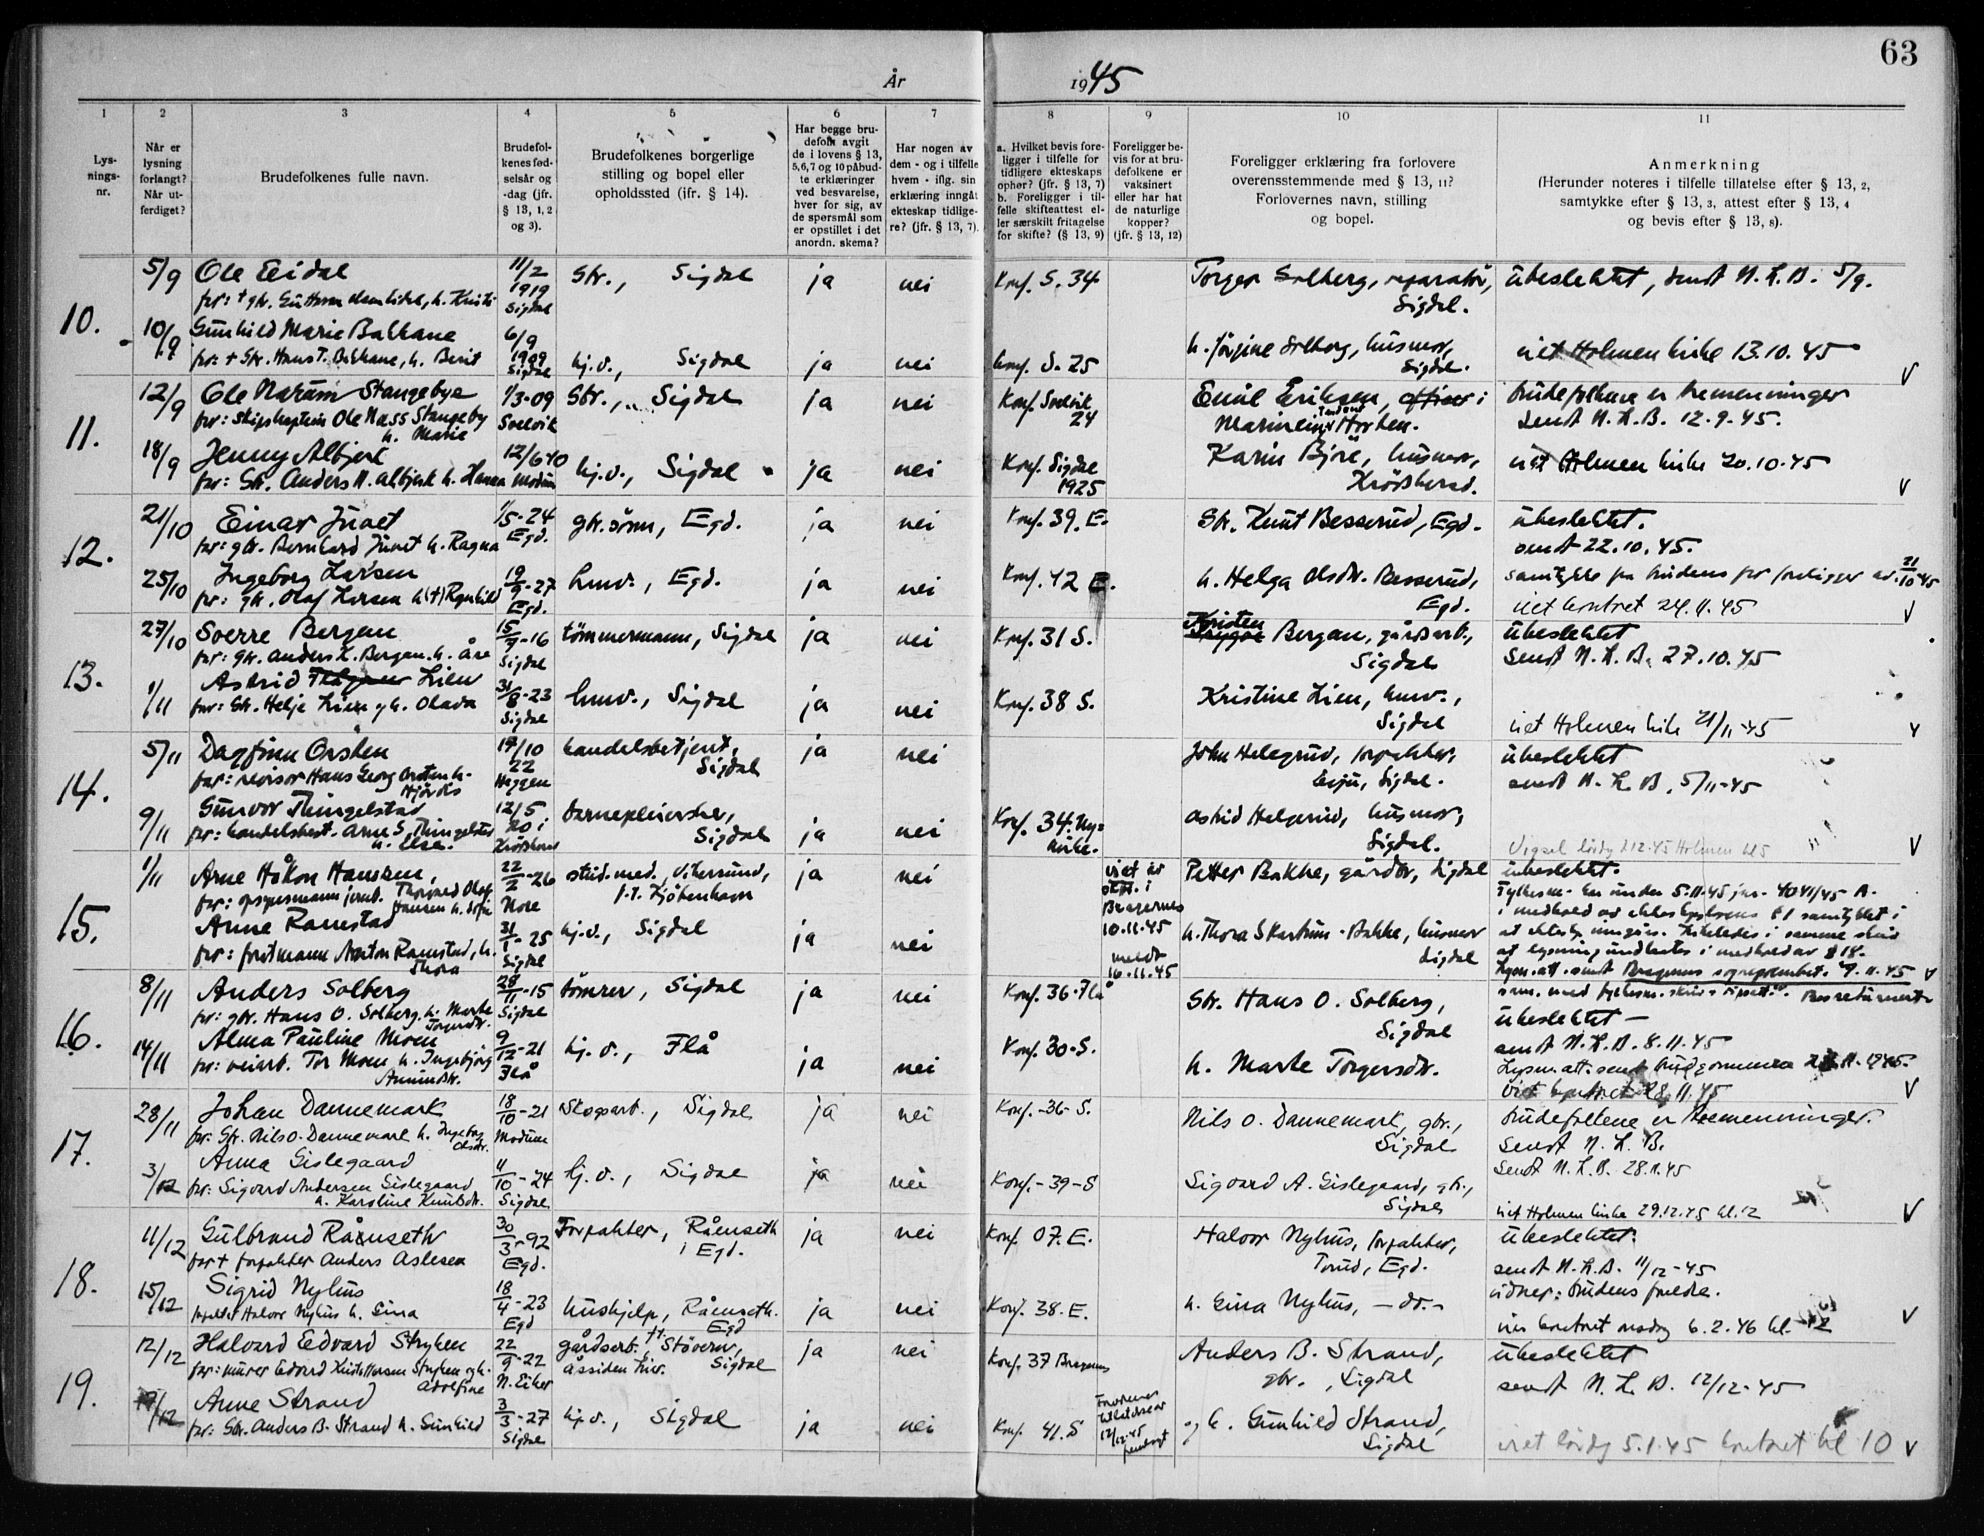 63
År 1945
1 2 3 4 5 6 7 8 9 10 11
Lys-
nings-
nr.
Når er
lysning
forlangt?
Når ut-
ferdiget?
Brudefolkenes fulle navn.
Brudefol-
kenes fød-
selsår og
-dag (jfr.
§ 13, 1, 2
og 3).
Brudefolkenes borgerlige
stilling og bopel eller
opholdssted (jfr. § 14).
Har begge bru-
defolk avgit
de i lovens § 13,
5,6,7 og 10 påbud-
te erklæringer
ved besvarelse,
hver for sig, av
de spørsmål som
er opstillet i det
anordn. skema?
Har nogen av
dem - og i tilfelle
hvem - iflg. sin
erklæring inngåt
ekteskap tidlige-
re? (jfr. § 13, 7).
a. Hvilket bevis fore-
ligger i tilfelle for
tidligere ekteskaps
ophør? (jfr. § 13, 7)
b. Foreligger i til-
felle skifteattest el-
ler særskilt fritagelse
for skifte? (§ 13, 9)
Foreligger be-
vis for at bru-
defolkene er
vaksinert
eller har hat
de naturlige
kopper?
(jfr. § 13, 12)
Foreligger erklæring fra forlovere
overensstemmende med § 13, 11?
Forlovernes navn, stilling
og bopel.
Anmerkning
(Herunder noteres i tilfelle tillatelse efter § 13, 2,
samtykke efter § 13, 3, attest efter § 13, 4
og bevis efter § 13, 8).
10.
5/9 Ole Eidal 11/2 Str., Sigdal ja nei Konf. S. 34 Torger Solberg, reparatør, ubeslektet, sendt N.L.B. 5/9.
1919
Sigdal Sigdal.
10/9 Gunhild Marie Bakkane 6/9
far: + Str. Hans T. Bakkane, h. Berit 1909 hj.v., Sigdal ja nei konf. S. 25 h. Jørgine Solberg, husmor, viet Holmen kirke 13.10.45 V
Sigdal Sigdal.
11.
12/9 Ole Narum Stangebye 1/3-09 Str., Sigdal ja nei Konf. Svelvik Emil Eriksen, i brudefolkene er tremenninger
far: skipskaptein Ole Nass Stangeby Svelvik 24 Horten. sendt N.L.B. 12.9.45.
h. Marie
18/9 Jenny Albjerk 12/6 10 hj.v., Sigdal ja nei Konf. Sigdal Karin Bjøre, husmor, viet Holmen kirke 20.10.45
far: Str. Anders N. Albjerk h. Hanna Modum 1925 Krødsherad. V
12.
21/10 Einar Juvet 1/5-24 gbr.sønn, Egd. ja nei Konf. 39. E. Str. Knut Besserud, Egd. ubeslektet.
far: gbr. Bernhard Juvet h. Ragna Egd. sendt 22.10.45.
25/10 Ingeborg Larsen 19/9-27 husv., Egd. ja nei Konf. 42 E. h. Helga Olsdtr. Besserud, samtykke fra brudens far foreligger av 21/10 45
far: gbr. Olaf Larsen h. (+) Ragnhild Egd. Egd. viet kontoret 24.11.45 V
13.
27/10 Sverre Bergan 15/7-16 tømmermann, Sigdal ja nei Konf. 31 S. Kristen Bergan, gårdsarb., ubeslektet
far: gbr. Anders K. Bergan h. Åse Sigdal Sigdal sendt N.L.B. 27.10.45
1/11 Astrid Lien 31/8-23 husv., Sigdal ja nei Konf. 38 S. Kristine Lien, husv.,
far: Str. Helje Lien og h. Olava Sigdal Sigdal viet Holmen kirke 21/11-45 V
14.
5/11 Dagfinn Orsten 17/10 handelsbetjent, ja nei John Helgerud, forpakter, ubeslektet
far: revisor Hans Georg Orsten h. 22 Sigdal Sigdal. sendt N.L.B. 5/11-45
Hjørdis Heggen
9/11 Gunvor Thingelstad 12/5 barnepleierske, Konf. 34. Ny- Astrid Helgerud, husmor,
far: handelsbest. Arne S. Thingelstad 20 i Sigdal ja nei kirke. Sigdal.
h. Else. Krødsherad Vigsel lørdg 1.12.45 Holmen kl 5 V
15.
1/11 Arne Håkon Hanssen, 22/2-26 stud.med., Vikersund, ja nei viet av Petter Bakke, gårdbr., Sigdal ubeslektet.
far: Thorvald Olaf Nore p.t. Kjøbenhavn i Fylkesm. har under 5.11.45 jnr. 4041/45 A.
Hansen h. Sofie Bragernes i medhold av ekteskapslovens § 1 samtykket i
Anne Ramstad 31/1-25 hj.v., Sigdal ja nei 10.11.45 h. Thora Skartum-Bakke, husmor at ektesk. inngåes. Likeledes i samme skriv
far: formann Anton Ramstad, h. Sigdal meldt Sigdal at lysning undlates i medhold av § 18.
Thora 16.11.45 Lysn.att. sendt Bragernes sogneprestembet. 9.11.45 V
16.
8/11 Anders Solberg 28/11-15 tømrer, Sigdal ja nei Konf. 36-Flå Str. Hans O. Solberg, ubeslektet —
far: gbr. Hans O. Solberg, h. Marte Sigdal Sigdal sendt N.L.B. 8.11.45
Torgersdtr.
14/11 Alma Pauline Moen 9/12-21 hj.v., Flå ja nei Konf. 30-S. h. Marte Torgersdtr. Lysn.att. sendt brudgommen 11.1945.
far: veiarb. Tor Moen h. Ingebjørg Flå viet kontoret 28.11.45 V
Amundsdtr.
17.
28/11 Johan Dannemark 18/10-21 Skogsarb., Sigdal ja nei Konf.-36-S. Nils O. Dannemark, gbr., brudefolkene er tremenninger.
far: Str. Nils O. Dannemark h. Ingeborg Modum Sigdal sendt N.L.B.
Olsdtr.
3/12 Anna Gislegaard 4/10-24 hj.v., Sigdal ja nei Konf.-39-S Sigvard A. Gislegaard, gbr., sendt N.L.B. 28.11.45
far: Sigvard Andersen Gislegaard Sigdal Sigdal
h. Karoline Knutsdtr. viet Holmen kirke 29.12.45 kl. 12 V
18.
11/12 Gulbrand Råenseth 30/3-92 Forpakter, Råenseth ja nei Konf. 07. E. Halvor Nyhus, forpakter, ubeslektet.
far + forpakter Anders Aslesen Egd. i Egd. Torud, Egd. sendt N.L.B. 11/12-45
15/12 Sigrid Nyhus 18/4-23 vidner: brudens foreldre.
forpakter Halvor Nyhus h. Gina Egd hushjelp, Råenseth. ja nei Konf. 38. E. h. Gina Nyhus, — do. -
Egd viet kontoret onsdag 6.2.46 kl. 12 V
19.
12/12 Halvard Edvard Stryken 22/9-22 gårdsarb. Støvern, ja nei Konf. 37 Bragernes Anders B. Strand, ubeslektet
far: murer Edvard Kristoffersen Stryken og h. N. Eiker åssiden Sigdal gbr., Sigdal sendt N.L.B. 12/12-45
Adolfine
17/12 Anne Strand 3/3-27 hj.v., Sigdal ja nei Konf. 41. S og h. Gunhild Strand,
far: Str. Anders B. Strand h. Gunhild Sigdal 12/12-45 Sigdal viet lørdg 5.1.45 kontoret kl 10 V